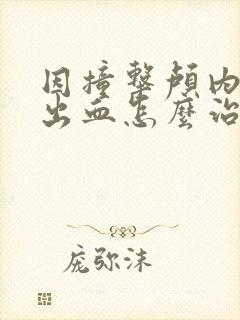 因撞擊顱內
出血怎麼治
庞弥沫